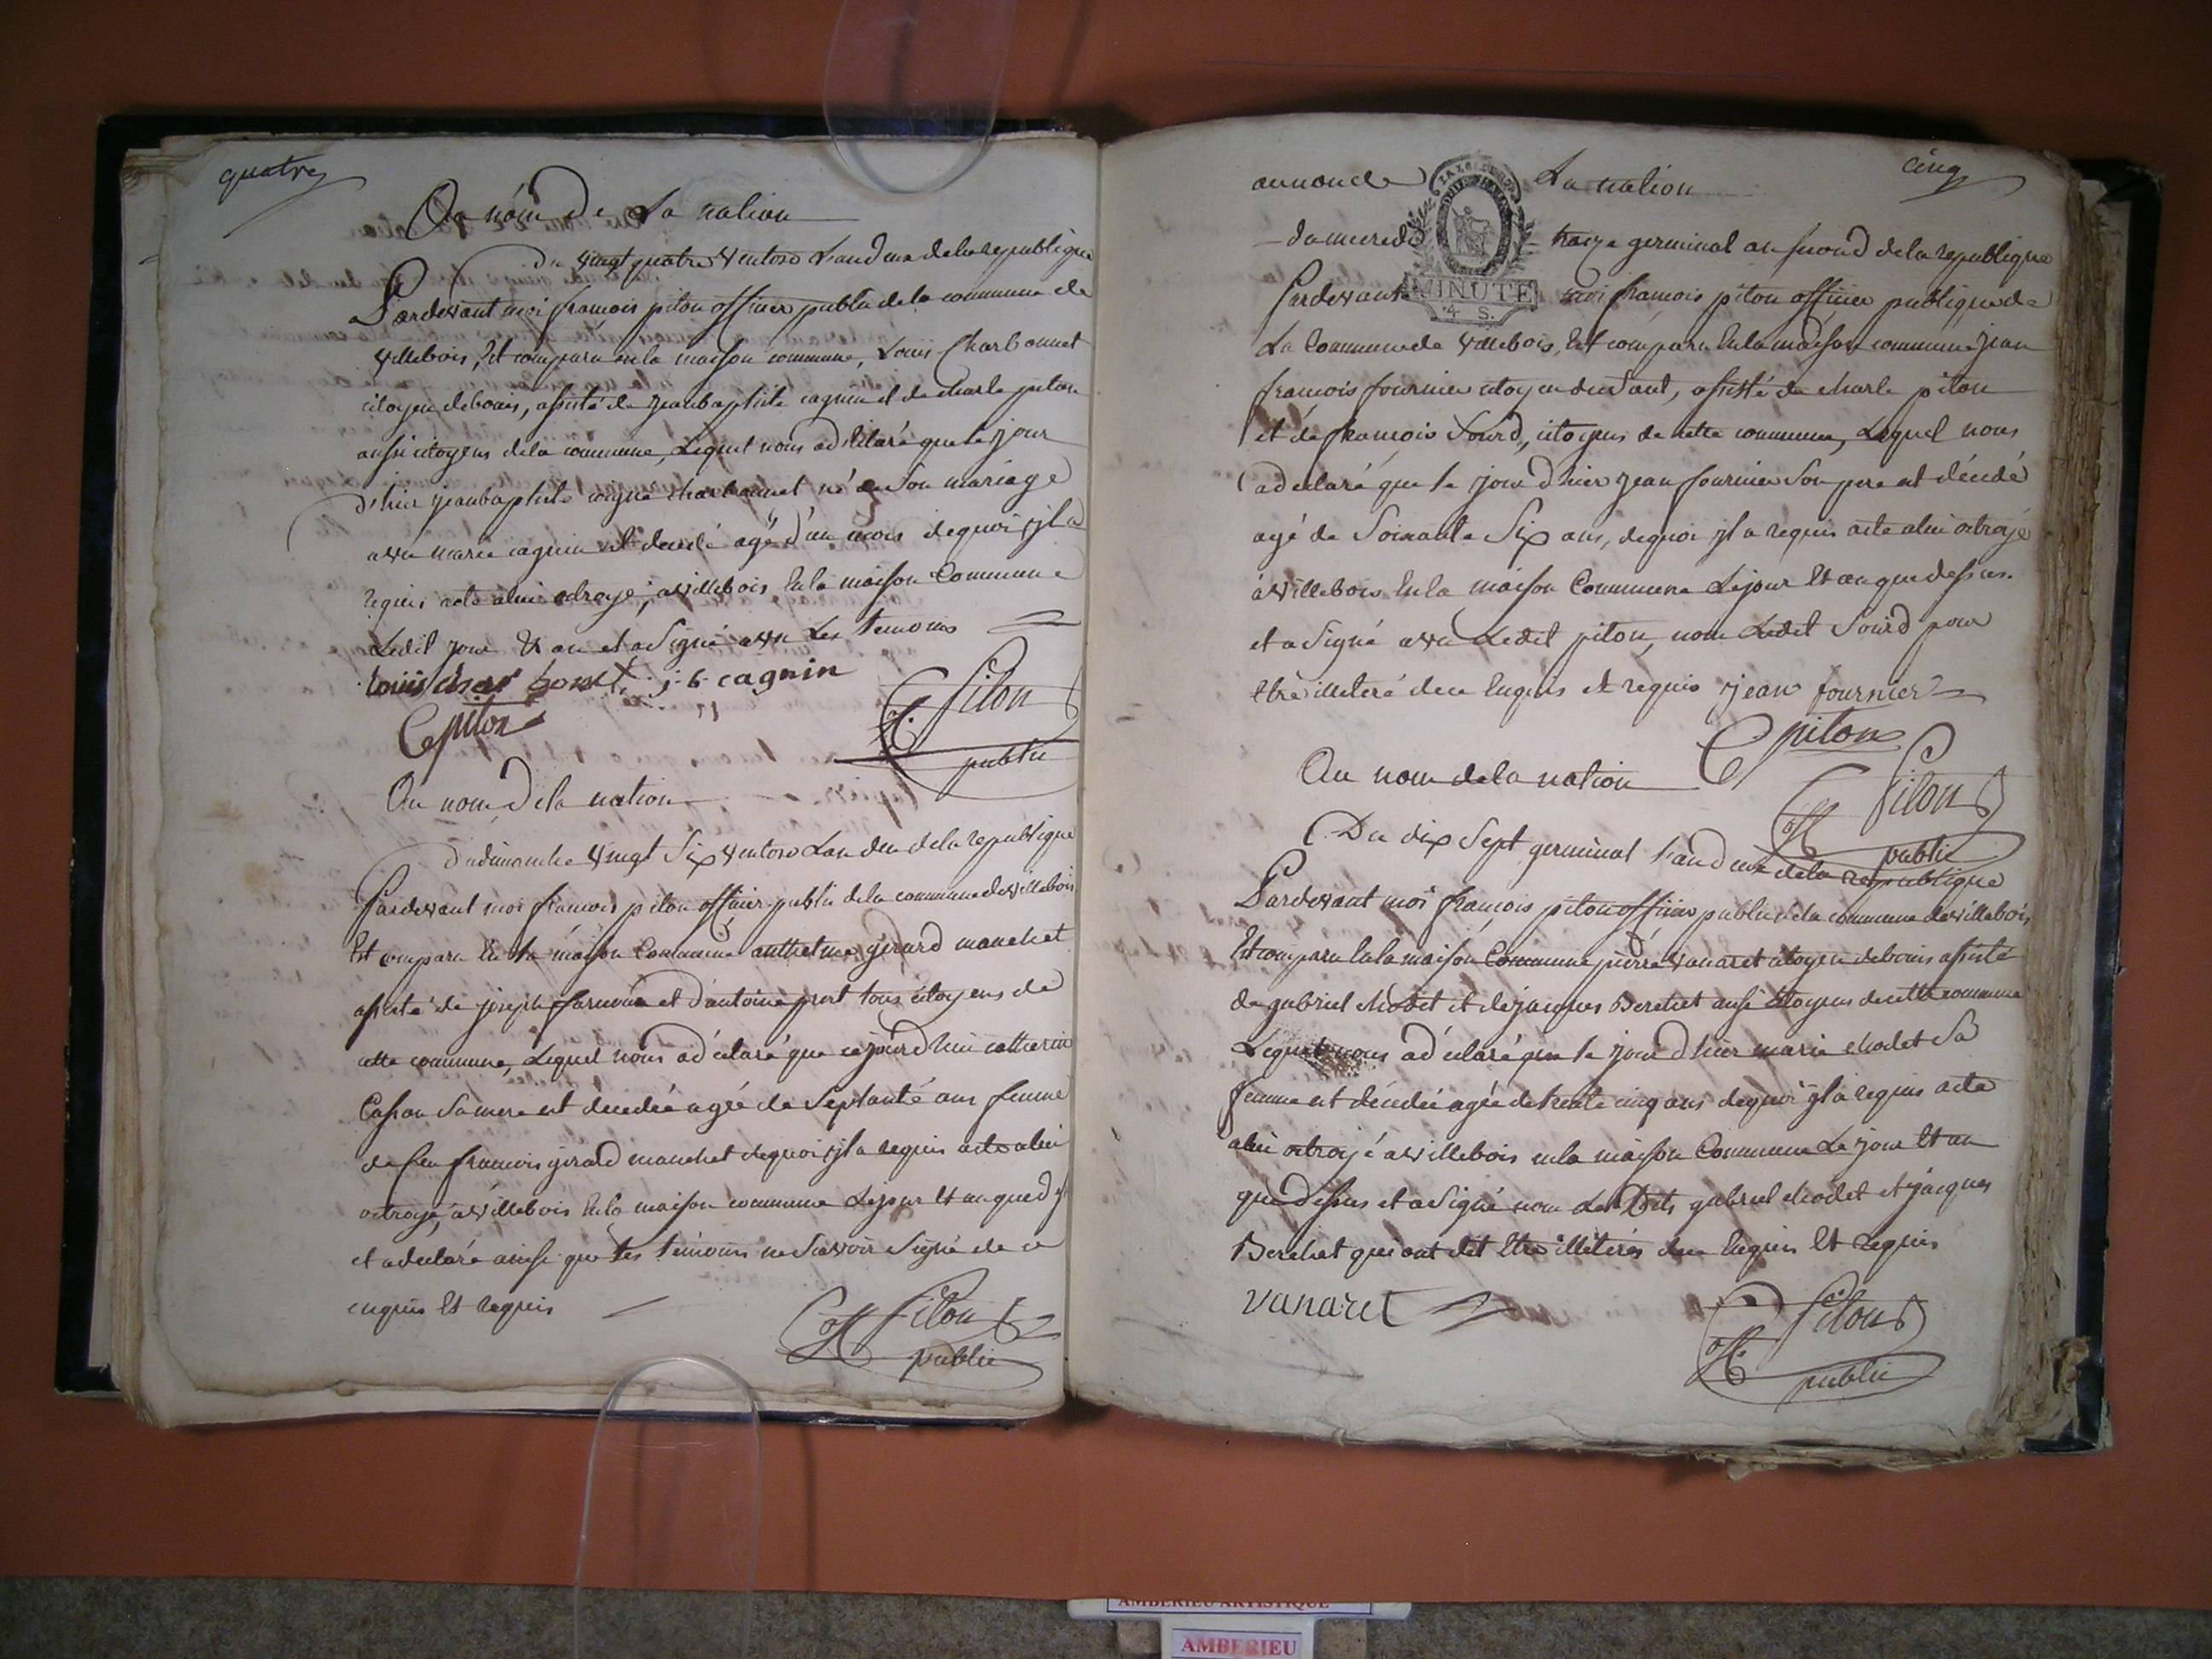 quatre
Au nom de La nation
Du vingt quatre Ventose L'an deux de la republique
Pardevant moi francois piton officier public de la commune de
villebois, Est comparu en la maison commune, Louis Charbonnet
citoyen de bouis, assisté de jean baptiste cagnin et de charle piton
aussi citoyens de la commune, Lequel nous a déclaré que le jour
d'hier jean baptiste Charbonnet né de Son mariage
avec marie cagnin est decedé agé d'un mois dequoi jl a
requis acte a lui octroyé, a villebois En la maison Commune
Ledit jour Et an et a Signé avec Les temoins
Louis char bonet j. b. cagnin
C piton
Piton
off. public
Au nom de la nation
du dimanche vingt Six ventose L'an deux de la republique
Pardevant moi francois piton officier public de la commune de villebois
Est comparu En la maison Commune anthelme girard manchet
assisté de joseph et d'antoine prost tous citoyens de
cette commune, Lequel nous a déclaré que ce jourd'hui catherine
Casson Sa mere est decedée agée de Septante ans femme
de feu francois girard manchet dequoi jl a requis acte a lui
octroyé, a villebois En la maison commune Le jour Et an que dessus
et a declaré ainsi que les témoins ne Scavoir Signé de ce
enquis Et requis
Piton
off. public
cinq
au nom de La nation
MINUTE
4 S.
du mercredi treize germinal an second de la republique
Pardevant moi francois piton officier publique de
La Commune de villebois, Est comparu En la maison commune jean
françois fournier citoyen dudant, assisté de charle piton
et de francois Sourd, citoyens de cette commune, Lequel nous
a declaré que le jour d'hier jean fournier Son pere est décédé
agé de Soixante Six ans, dequoi jl a requis acte a lui octroyé
à villebois En la maison Commune Le jour Et an que dessus.
et a Signé avec Ledit piton, non Ledit Sourd pour
être illeteré de ce Enquis et requis jean fournier
C piton
Piton
off. public
Au nom de la nation
Du dix Sept germinal l'an deux de la republique
Pardevant moi françois piton officier public de la commune de villebois
Est comparu En la maison Commune pierre vanaret citoyen de bouis assisté
de gabriel chodet et de jacques Berchet aussi Citoyens de cette commune
Lequel nous a déclaré que le jour d'hier marie chodet Sa
femme est décédée agée de trente cinq ans dequoi jl a requis acte
a lui octroyé a villebois en la maison Commune Le jour Et an
que dessus et a Signé non Les Dits gabriel chodet et jacques
Berchet qui ont dit Etre illitérés de ce Enquis Et requis
vanaret
Piton
off. public
AMBERIEU ARTISTIQUE
AMBERIEU